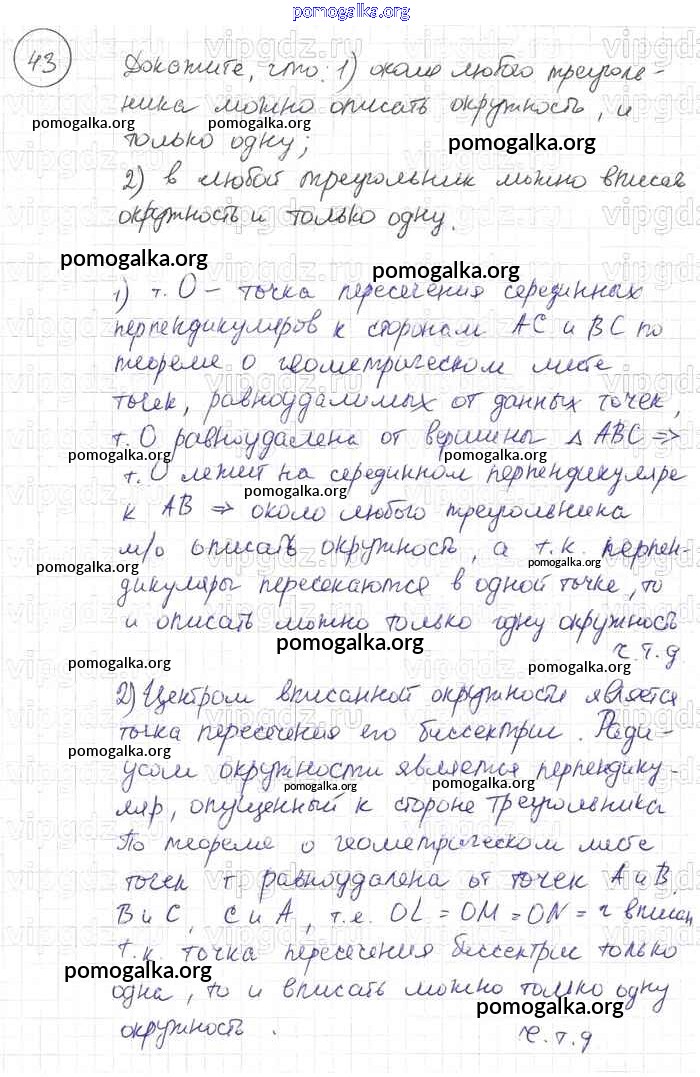 pomogalka.org
43
Докажите, что: 1) около любого треуголь-
ника можно описать окружность, и
pomogalka.org pomogalka.org
только одну; pomogalka.org
2) в любой треугольник можно вписать
окружность и только одну.
pomogalka.org pomogalka.org
1) т. О – точка пересечения серединных
перпендикуляров к сторонам AC и BC по
теореме о геометрическом месте
точек, равноудалимых от данных точек,
т. О равноудалена от вершины △ ABC ⇒
pomogalka.org pomogalka.org
т. О лежит на серединном перпендикуляре
pomogalka.org
к AB ⇒ около любого треугольника
м/о описать окружность, а т.к. перпен-
pomogalka.org pomogalka.org
дикуляры пересекаются в одной точке, то
и описать можно только одну окружность
pomogalka.org
ч.т.д
pomogalka.org pomogalka.org
2) Центром вписанной окружности является
точка пересечения его биссектрис. Ради-
pomogalka.org
усом окружности является перпендику-
pomogalka.org pomogalka.org
ляр, опущенный к стороне треугольника
По теореме о геометрическом месте
точек т. равноудалена от точек A и B,
B и C, C и A, т.е. OL = OM = ON = r вписан
т.к. точка пересечения биссектрис только
pomogalka.org
одна, то и вписать можно только одну
pomogalka.org
окружность.
ч.т.д